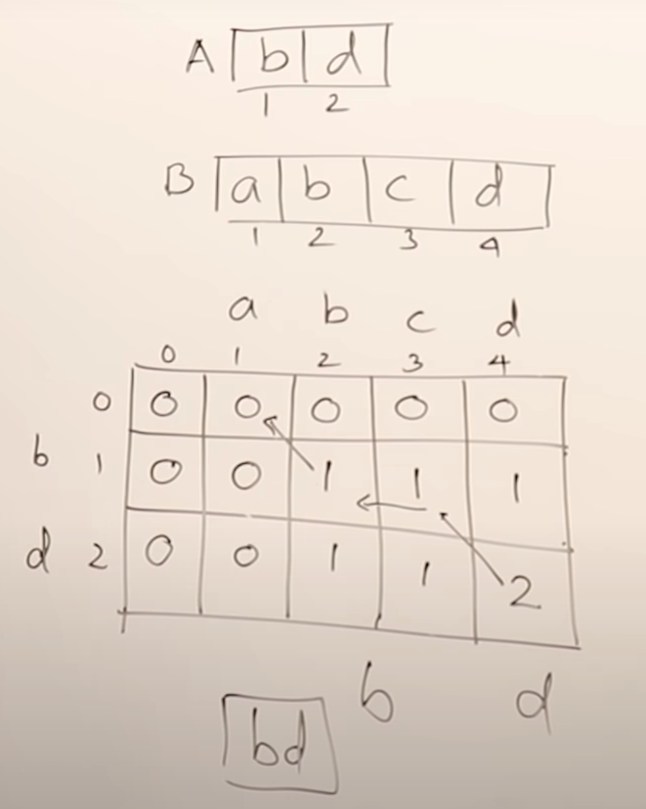 A b d
1 2
B a b c d
1 2 3 4
a b c d
0 1 2 3 4
0 0 0 0 0 0
b 1 0 0 1 1 1
d 2 0 0 1 1 2
b d
bd